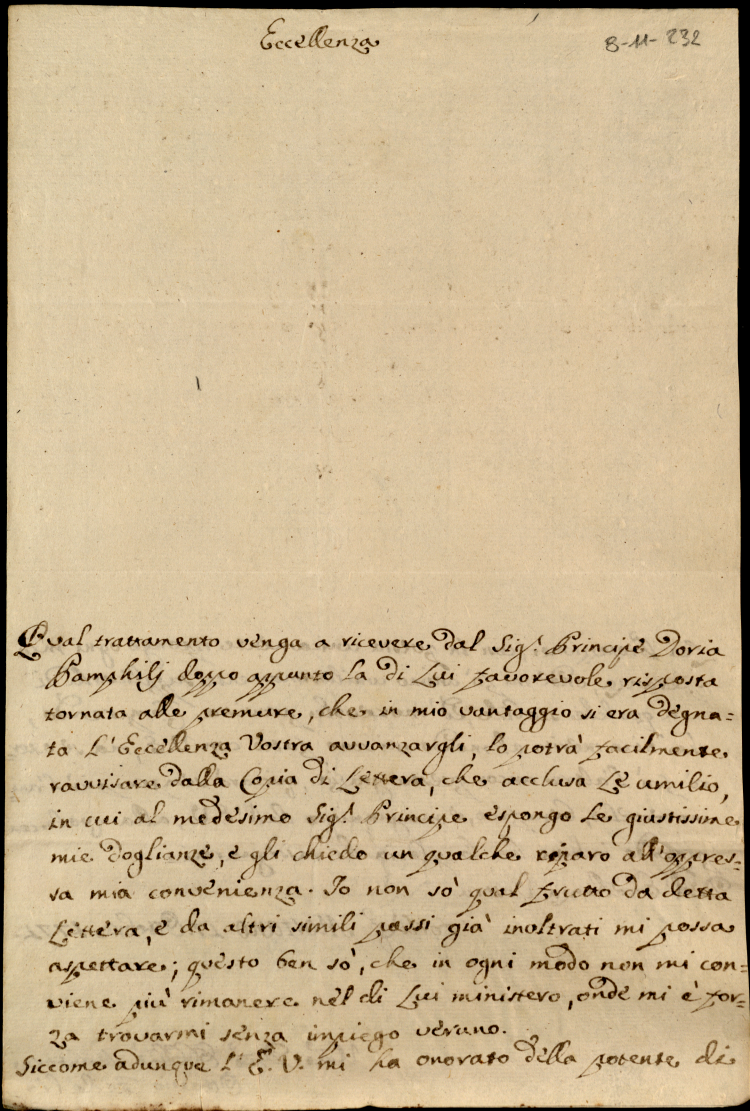 Eccellenza
8-11-232
Qual trattamento venga a ricevere dal Sig.r Principe Doria
Pamphilj doppo appunto la di Lui favorevole risposta
tornata alle premure, che in mio vantaggio si era degna=
ta L'Eccellenza Vostra avvanzargli, lo potrà facilmente
ravvisare dalla Copia di Lettera, che acclusa Le umilio,
in cui al medesimo Sig.r Principe espongo le giustissime
mie doglianze, e gli chiedo un qualche riparo all'oppres=
sa mia convenienza. Io non sò qual frutto da detta
Lettera, e da altri simili passi già inoltrati mi possa
aspettare; questo ben sò, che in ogni modo non mi con=
viene più rimanere nel di Lui ministero, onde mi è for=
za trovarmi senza impiego veruno.
Siccome adunque L'E. V. mi ha onorato della potente di